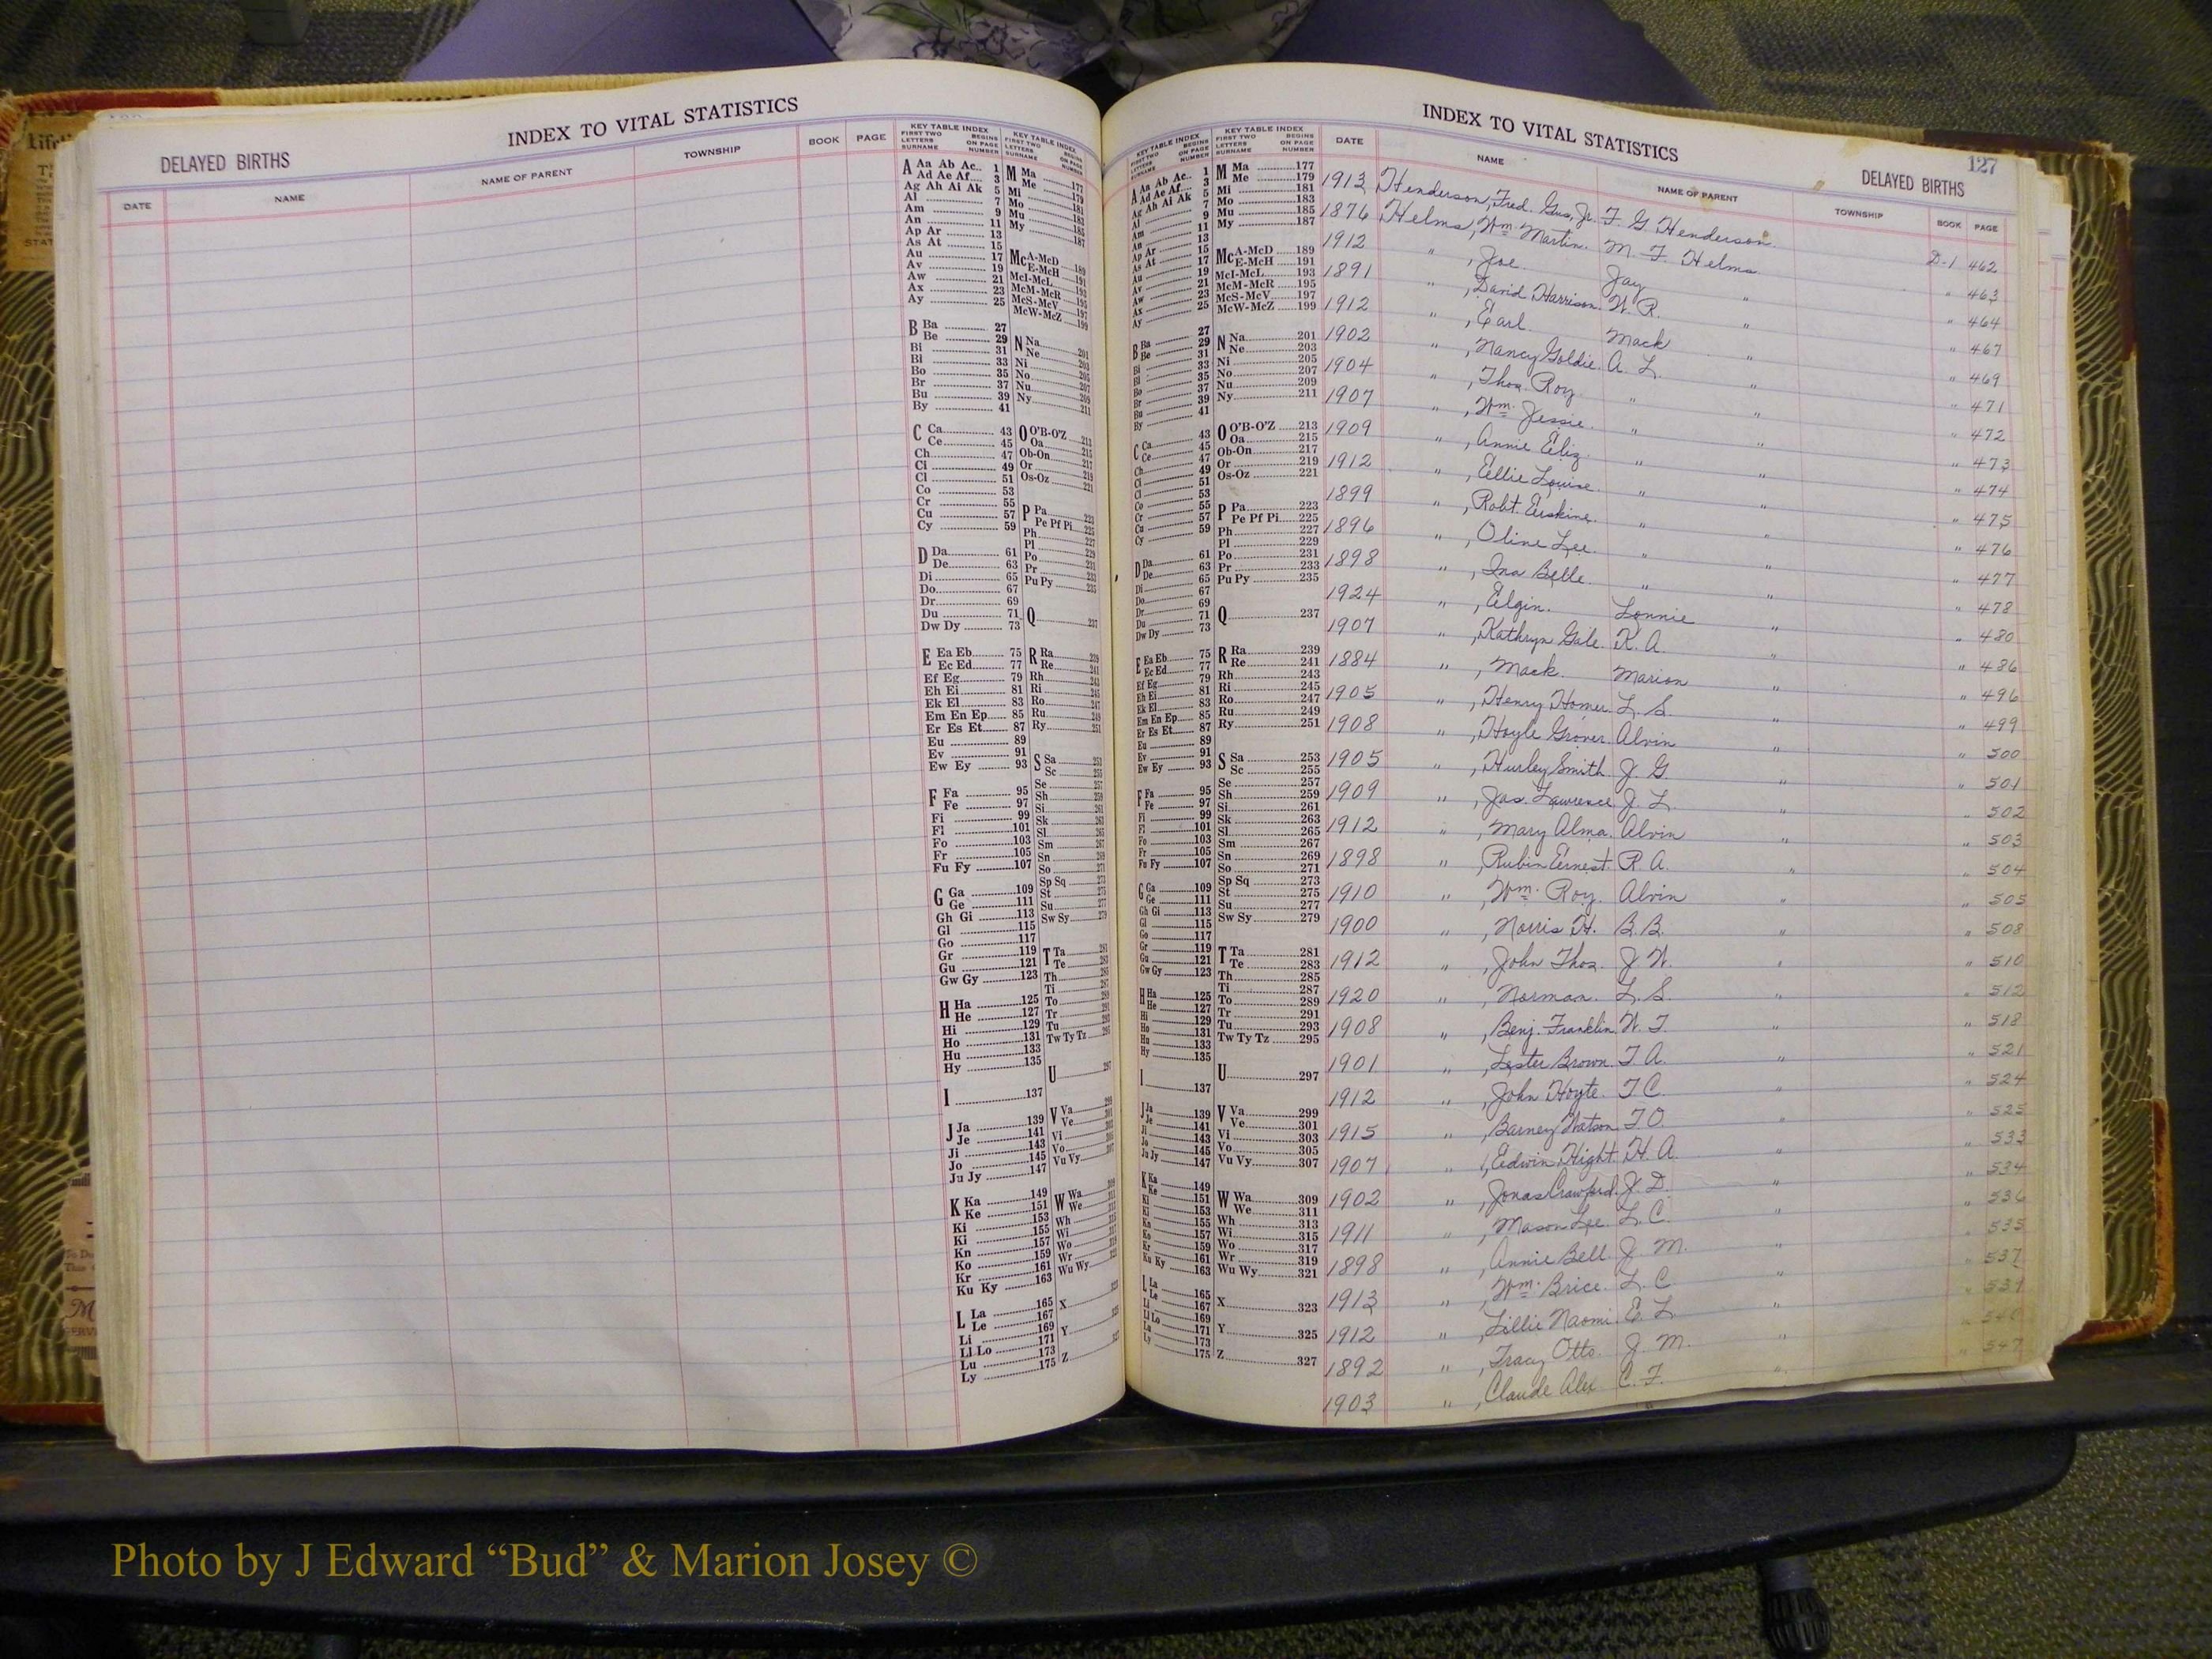 INDEX TO VITAL STATISTICS
DELAYED BIRTHS
DATE NAME NAME OF PARENT TOWNSHIP BOOK PAGE
KEY TABLE INDEX
FIRST TWO LETTERS SURNAME BEGINS ON PAGE NUMBER
A Aa Ab Ac 1
Ad Ae Af 3
Ag Ah Ai Ak 5
Al 7
Am 9
An 11
Ap Ar 13
As At 15
Au 17
Av 19
Aw 21
Ax 23
Ay 25
B Ba 27
Be 29
Bi 31
Bl 33
Bo 35
Br 37
Bu 39
By 41
C Ca 43
Ce 45
Ch 47
Ci 49
Cl 51
Co 53
Cr 55
Cu 57
Cy 59
D Da 61
De 63
Di 65
Do 67
Dr 69
Du 71
Dw Dy 73
E Ea Eb 75
Ec Ed 77
Ef Eg 79
Eh Ei 81
Ek El 83
Em En Ep 85
Er Es Et 87
Eu 89
Ev 91
Ew Ey 93
F Fa 95
Fe 97
Fi 99
Fl 101
Fo 103
Fr 105
Fu Fy 107
G Ga 109
Ge 111
Gh Gi 113
Gl 115
Go 117
Gr 119
Gu 121
Gw Gy 123
H Ha 125
He 127
Hi 129
Ho 131
Hu 133
Hy 135
I 137
J Ja 139
Je 141
Ji 143
Jo 145
Ju Jy 147
K Ka 149
Ke 151
Ki 153
Ki 155
Kn 157
Ko 159
Kr 161
Ku Ky 163
L La 165
Le 167
Li 169
Ll Lo 171
Lu 173
Ly 175
INDEX TO VITAL STATISTICS
127
DELAYED BIRTHS
KEY TABLE INDEX
FIRST TWO LETTERS SURNAME BEGINS ON PAGE NUMBER
M Ma 177
Me 179
Mi 181
Mo 183
Mu 185
My 187
Mc A-McD 189
E-McH 191
McI-McL 193
McM-McR 195
McS-McV 197
McW-McZ 199
N Na 201
Ne 203
Ni 205
No 207
Nu 209
Ny 211
O O'B-O'Z 213
Oa 215
Ob-On 217
Or 219
Os-Oz 221
P Pa 223
Pe Pf Pi 225
Ph 227
Pl 229
Po 231
Pr 233
Pu Py 235
Q 237
R Ra 239
Re 241
Rh 243
Ri 245
Ro 247
Ru 249
Ry 251
S Sa 253
Sc 255
Se 257
Sh 259
Si 261
Sk 263
Sl 265
Sm 267
Sn 269
So 271
Sp Sq 273
St 275
Su 277
Sw Sy 279
T Ta 281
Te 283
Th 285
Ti 287
To 289
Tr 291
Tu 293
Tw Ty Tz 295
U 297
V Va 299
Ve 301
Vi 303
Vo 305
Vu Vy 307
W Wa 309
We 311
Wh 313
Wi 315
Wo 317
Wr 319
Wu Wy 321
X 323
Y 325
Z 327
DATE NAME NAME OF PARENT TOWNSHIP BOOK PAGE
1913 Henderson, Fred. Gus, Jr. F. G. Henderson D-1 462
1876 Helms, Wm. Martin. M. F. Helms " 463
1912 " , Joe. Jay " " 464
1891 " , David Harrison. W. R. " " 467
1912 " , Earl. Mack " " 469
1902 " , Nancy Goldie. A. L. " " 471
1904 " , Thos. Roy. " " " 472
1907 " , Wm. Jessie. " " " 473
1909 " , Annie Eliz. " " " 474
1912 " , Ellie Louise. " " " 475
1899 " , Robt. Erskine. " " " 476
1896 " , Oline Lee. " " " 477
1898 " , Ina Belle. " " " 478
1924 " , Elgin. Lonnie " " 480
1907 " , Kathryn Gale. K. A. " " 486
1884 " , Mack. Marion " " 496
1905 " , Henry Homer. L. S. " " 499
1908 " , Hoyle Grover Alvin " " 500
1905 " , Hurley Smith J. G. " " 501
1909 " , Jas. Lawrence J. L. " " 502
1912 " , Mary Alma. Alvin " " 503
1898 " , Rubin Ernest R. A. " " 504
1910 " , Wm. Roy. Alvin " " 505
1900 " , Norris H. B. B. " " 508
1912 " , John Thos. J. W. " " 510
1920 " , Norman. L. S. " " 512
1908 " , Benj. Franklin. W. T. " " 518
1901 " , Lester Brown. T. A. " " 521
1912 " , John Hoyte. T. C. " " 524
1915 " , Barney Watson T. O. " " 525
1907 " , Edwin Hight. H. A. " " 533
1902 " , Jonas Crawford. J. D. " " 534
1911 " , Mason Lee. L. C. " " 536
1898 " , Annie Bell. J. M. " " 535
1913 " , Wm. Brice. L. C. " " 537
1912 " , Lillie Naomi. E. L. " "
1892 " , Tracy Otto. J. M. " "
1903 " , Claude Alex C. F. " " 547
Photo by J Edward “Bud” & Marion Josey ©